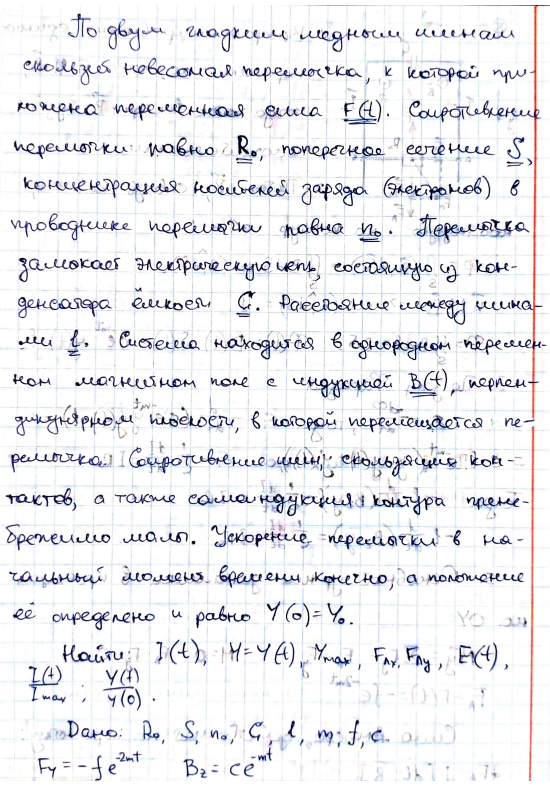 По двум, гладким медным шинам
скользит невесомая перемычка, к которой при-
ложена переменная сила F(t). Сопротивление
перемычки равно R₀, поперечное сечение S,
концентрация носителей заряда (электронов) в
проводнике перемычки равна n₀. Перемычка
замыкает электрическую цепь, состоящую из кон-
денсатора ёмкости C. Расстояние между шина-
ми l. Система находится в однородном перемен-
ном магнитном поле с индукцией B(t), перпен-
дикулярном плоскости, в которой перемещается пе-
ремычка. Сопротивление шин, скользящих кон-
тактов, а также самоиндукция контура прене-
брежимо малы. Ускорение перемычки в на-
чальный момент времени конечно, а положение
её определено и равно Y(0)=Y₀.
Найти: I(t), Y=Y(t), Y_max, F_лx, F_лy, E(t),
I(t)/I_max ; Y(t)/Y(0).
Дано: R₀, S, n₀, C, l, m, f, c.
F_y = -fe^{-2mt} B_z = ce^{-mt}